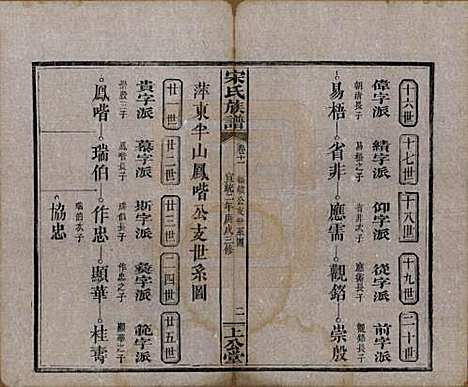 十六世 十七世 十八世 十九世 二十世
偉字派 績字派 仰字派 從字派 前字派
朝清長子 易梧之子 省非次子 應術長子 觀銘之子
易梧 省非 應需 觀銘 崇殷
宋氏族譜 卷十一 公支世系圖 宣統二年庚戌三修 二 上公堂
萍東半山鳳喈公支世系圖
廿一世 廿二世 廿三世 二四世 廿五世
貴字派 慕字派 斯字派 彝字派 範字派
崇殷三子 鳳喈長子 瑞伯長子 作忠之子 顯華之子
鳳喈 瑞伯 作忠 顯華 桂壽
瑞伯次子
協忠